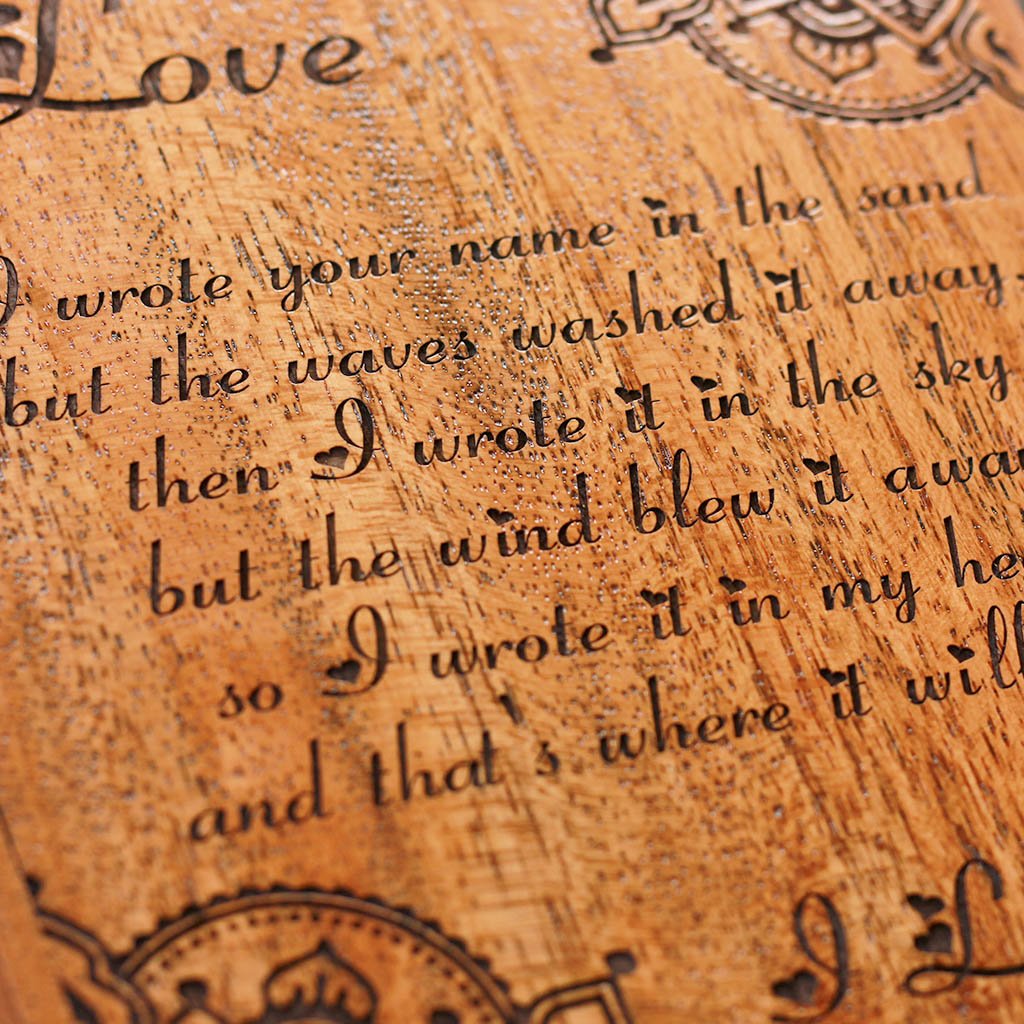 Love
I wrote your name in the sand
but the waves washed it away.
then I wrote it in the sky
but the wind blew it away
so I wrote it in my
and that's where it will
I